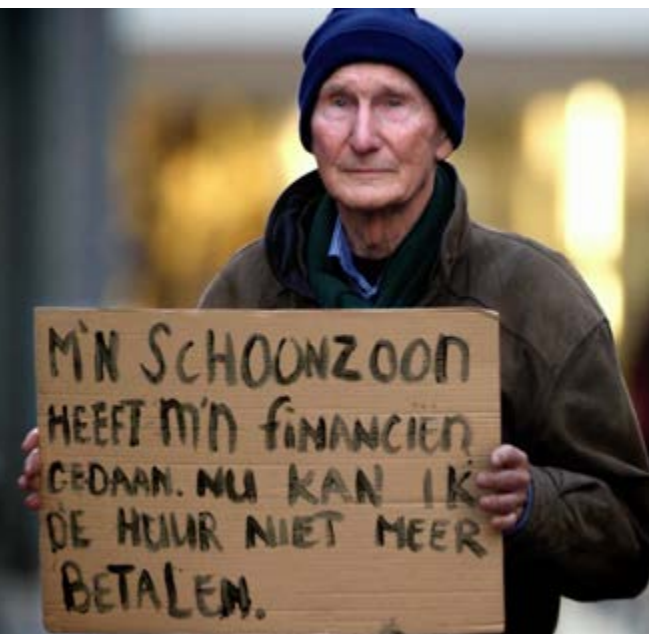 M'N SCHOONZOON
HEEFT m'n fiNANCIEN
GEDAAN. NU KAN IK
DE HUUR NIET MEER
BETALEN.